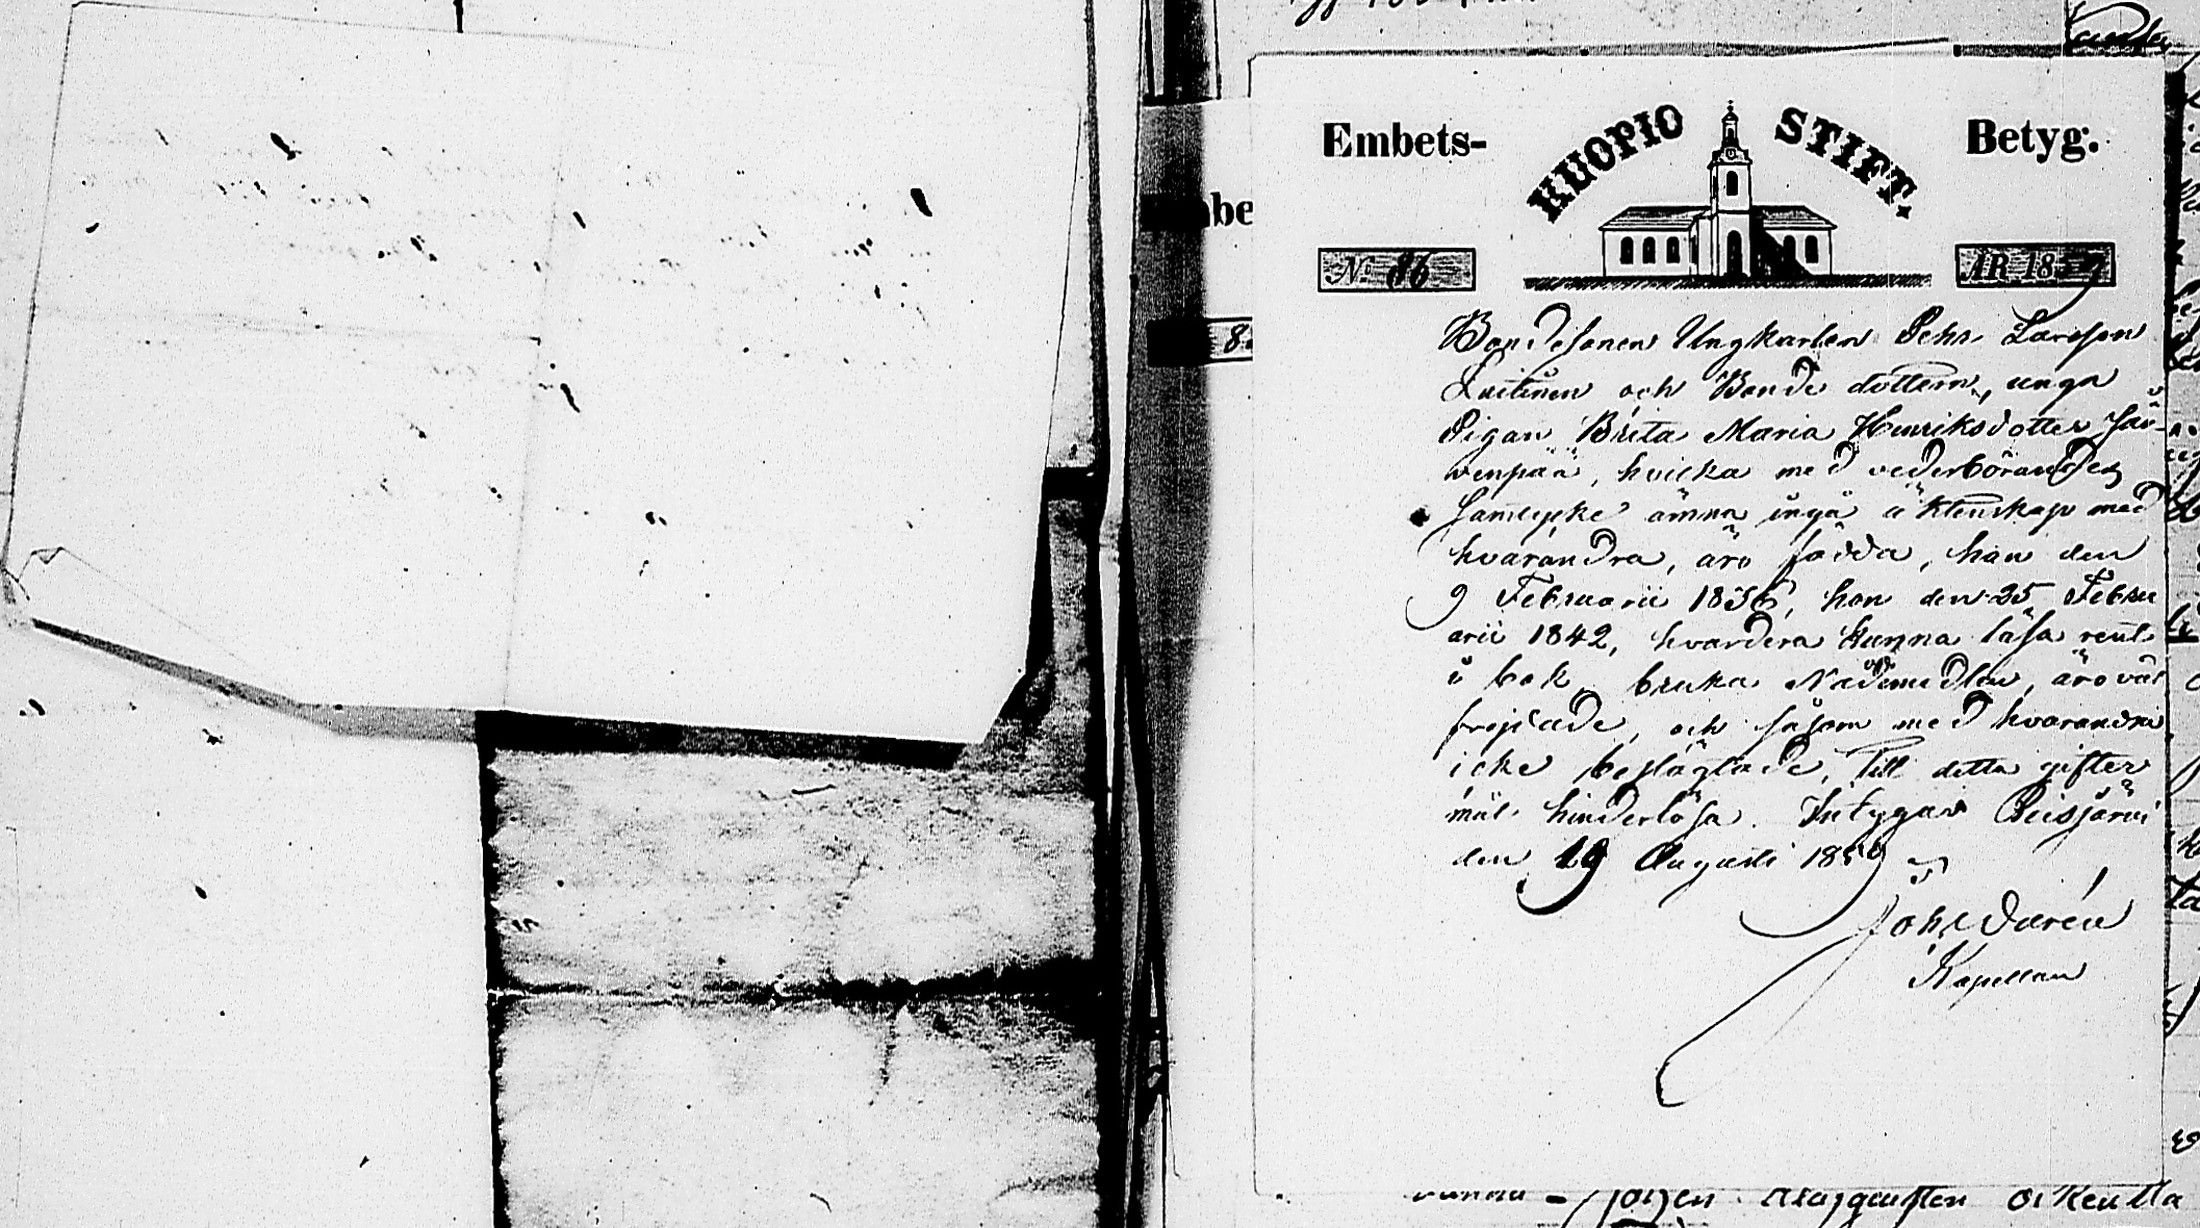 Embets-
KUOPIO STIFT.
Betyg.
No 86
ÅR 1859
Bondesonen Ungkarlen Pehr Larsson
Luitinen och Bonde dottern, unga
Pigan Brita Maria Henriksdotter Jär-
venpää, hvilka med vederbörandes
samtycke ämna ingå äktenskap med
hvarandra, äro födda, han den
9 Februarii 1836, hon den 25 Febru
arii 1842, hvardera kunna läsa rent
i bok, bruka Nådemedlen, äro väl
frejdade, och såsom med hvarandra
icke beslägtade, till detta gifter
mål hinderlösa. Intygar Reisjärvi
den 19 Augusti 1859
Joh.
Kapellan